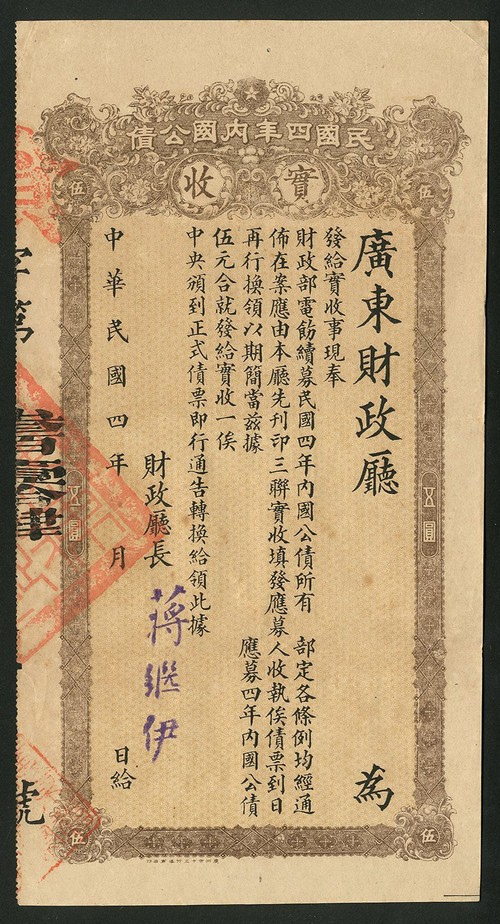 民國四年內國公債
實收
伍
伍
廣東財政廳 為
發給實收事現奉
財政部電飭續募民國四年內國公債所有 部定各條例均經通
佈在案應由本廳先刊印三聯實收填發應募人收執俟債票到日
再行換領以期簡當茲據 應募四年內國公債
伍元合就發給實收一俟
中央頒到正式債票即行通告轉換給領此據
財政廳長 蔣繼伊
中華民國四年 月 日給
五圓
五圓
伍
伍
字第
號